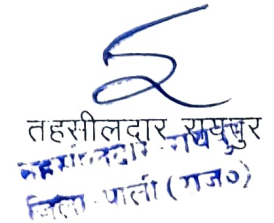 तहसीलदार रायपुर
तहसीलदार रायपुर
जिला-पाली (राज०)